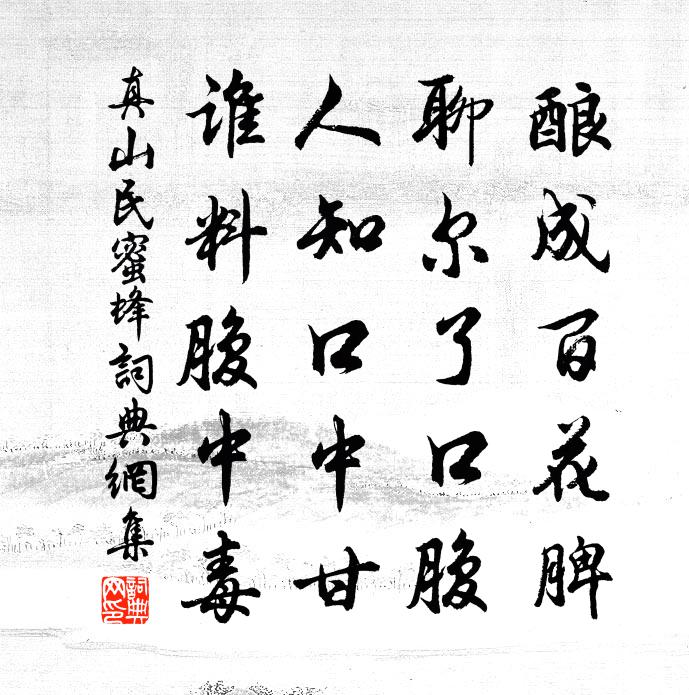 酿成百花脾
聊尔了口腹
人知口中甘
谁料腹中毒
真山民蜜蜂詞典網集
詞典网印